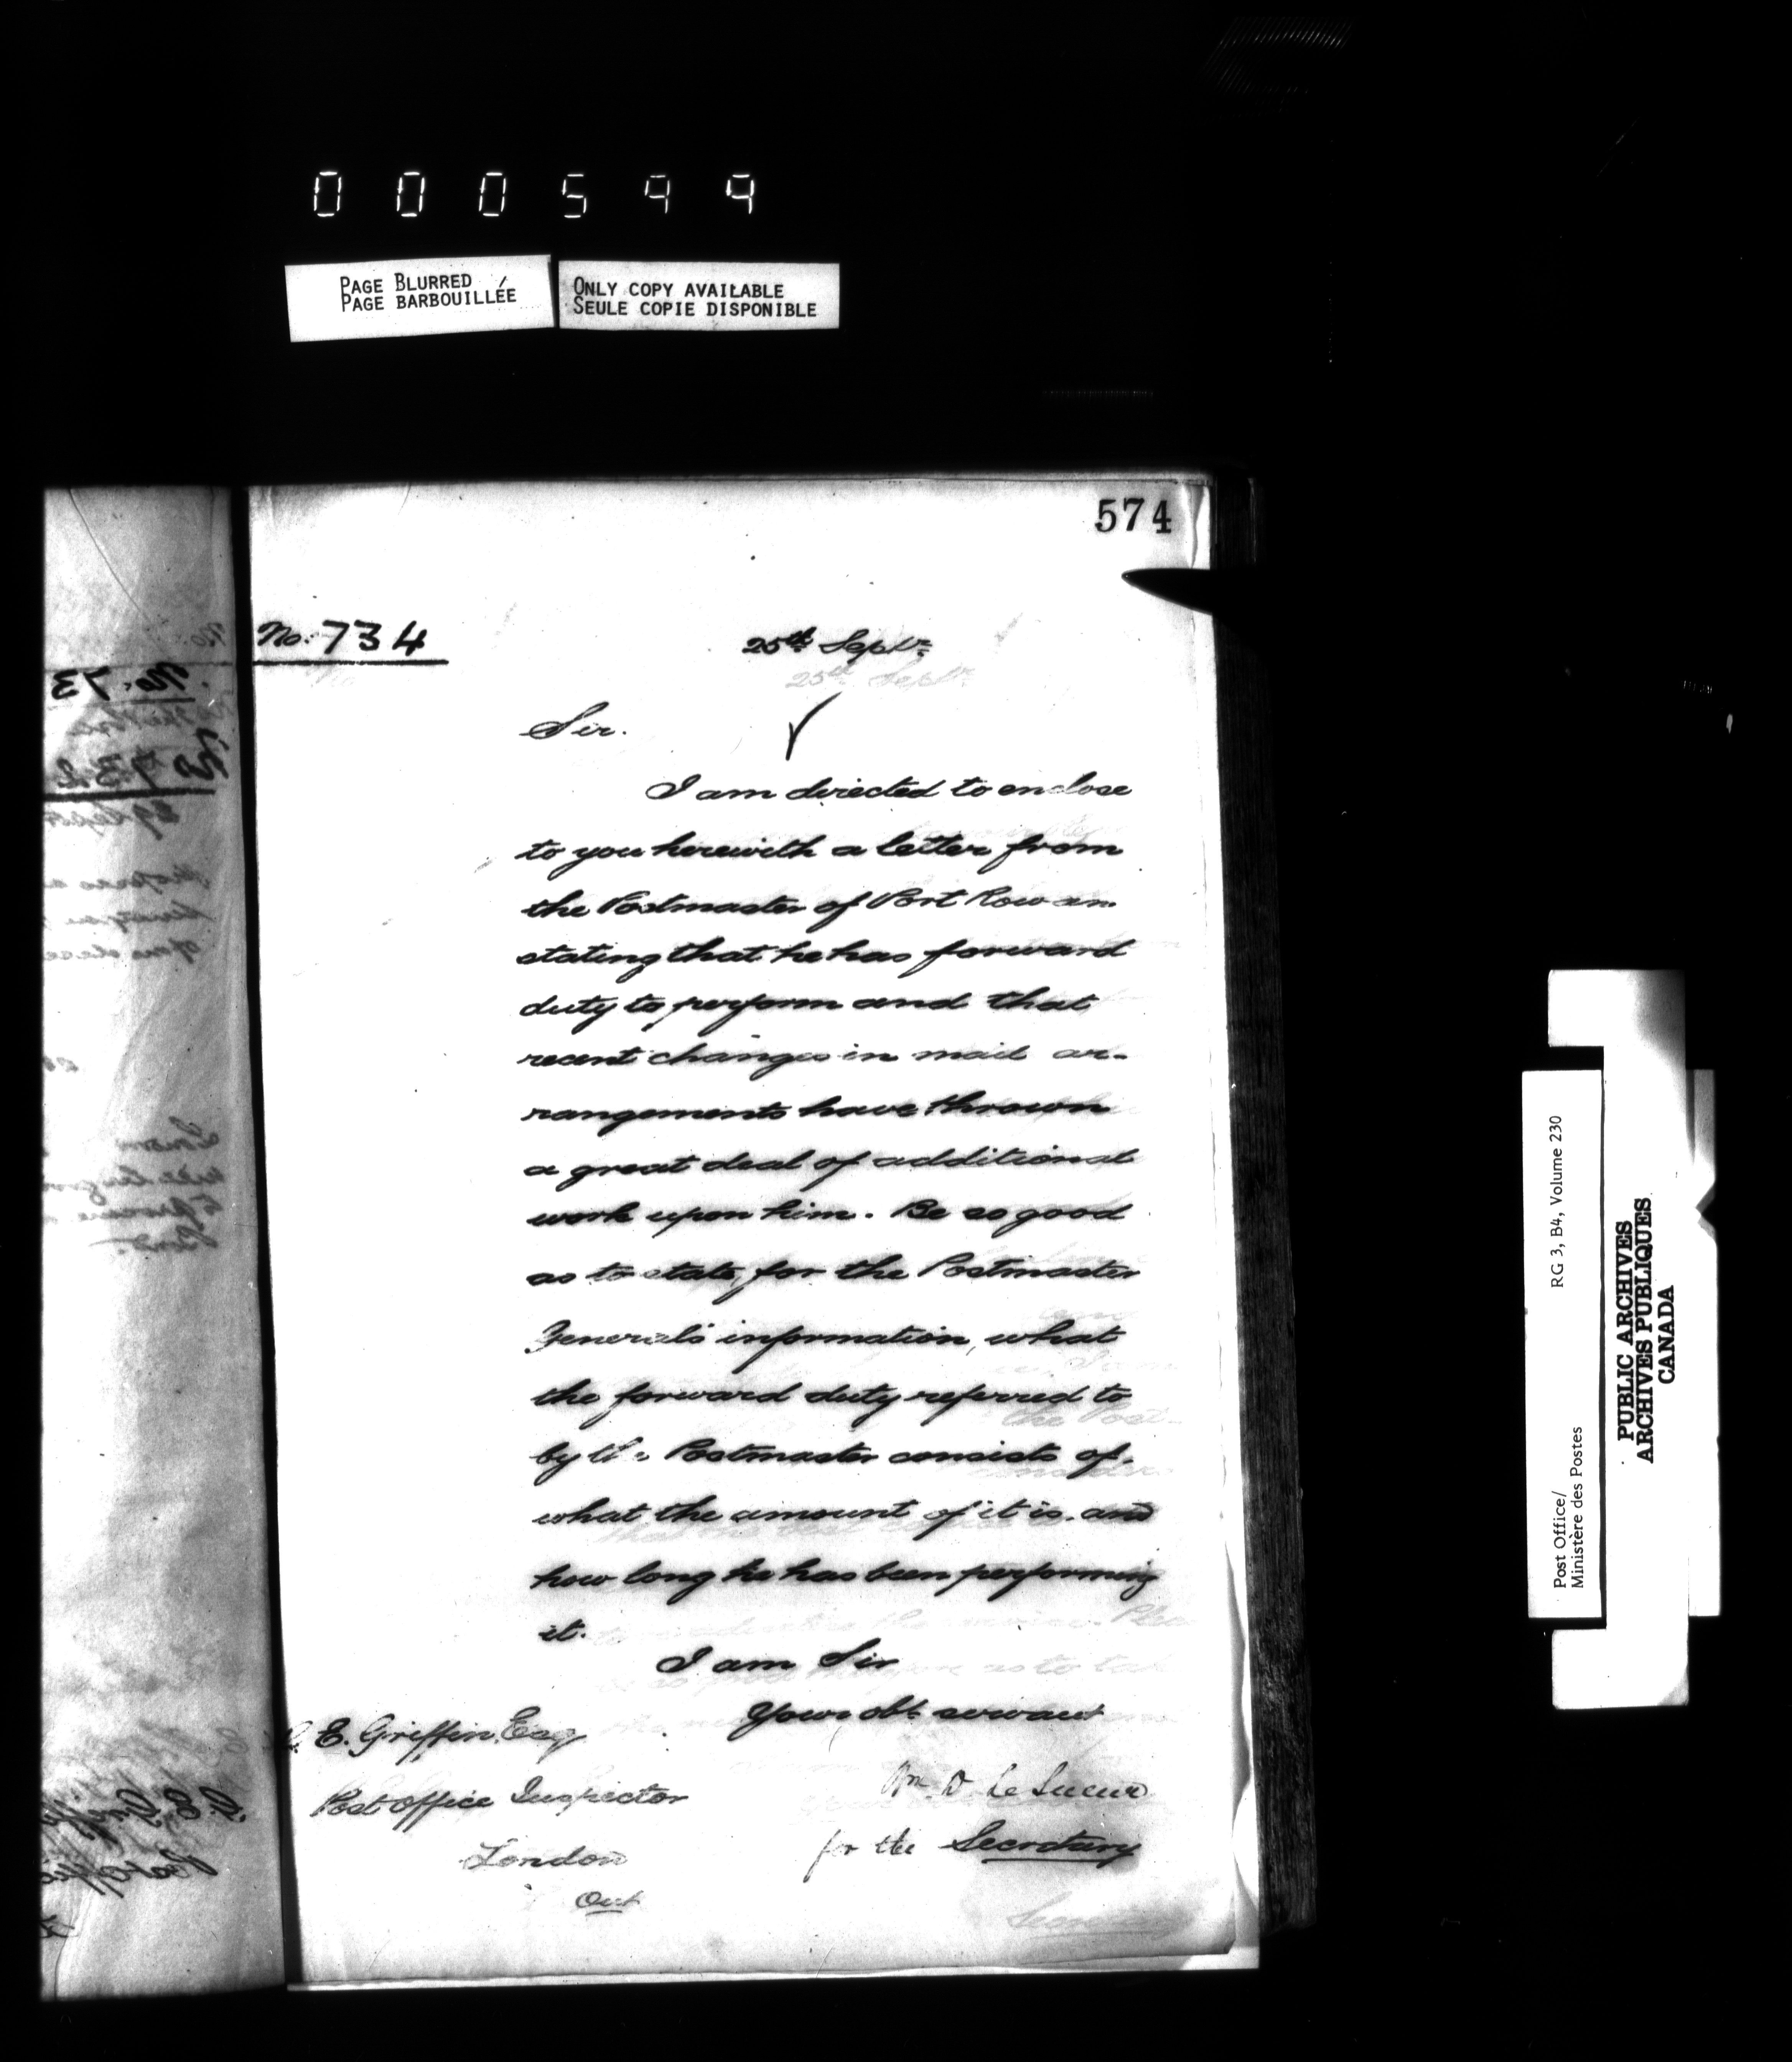 000599
PAGE BLURRED
PAGE BARBOUILLÉE
ONLY COPY AVAILABLE
SEULE COPIE DISPONIBLE
574
No. 734
25th Septr
Sir.
I am directed to enclose
to you herewith a letter from
the Postmaster of Port Rowan
stating that he has forward
duty to perform and that
recent changes in mail ar-
rangements have thrown
a great deal of additional
work upon him. Be so good
as to state, for the Postmaster
General's information, what
the forward duty referred to
by the Postmaster consists of,
what the amount of it is, and
how long he has been performing
it.
I am Sir
Your obt servant
Wm D Le Sueur
for the Secretary
E. Griffin, Esq
Post Office Inspector
London
Ont
Post Office/
Ministère des Postes
RG 3, B4, Volume 230
PUBLIC ARCHIVES
ARCHIVES PUBLIQUES
CANADA